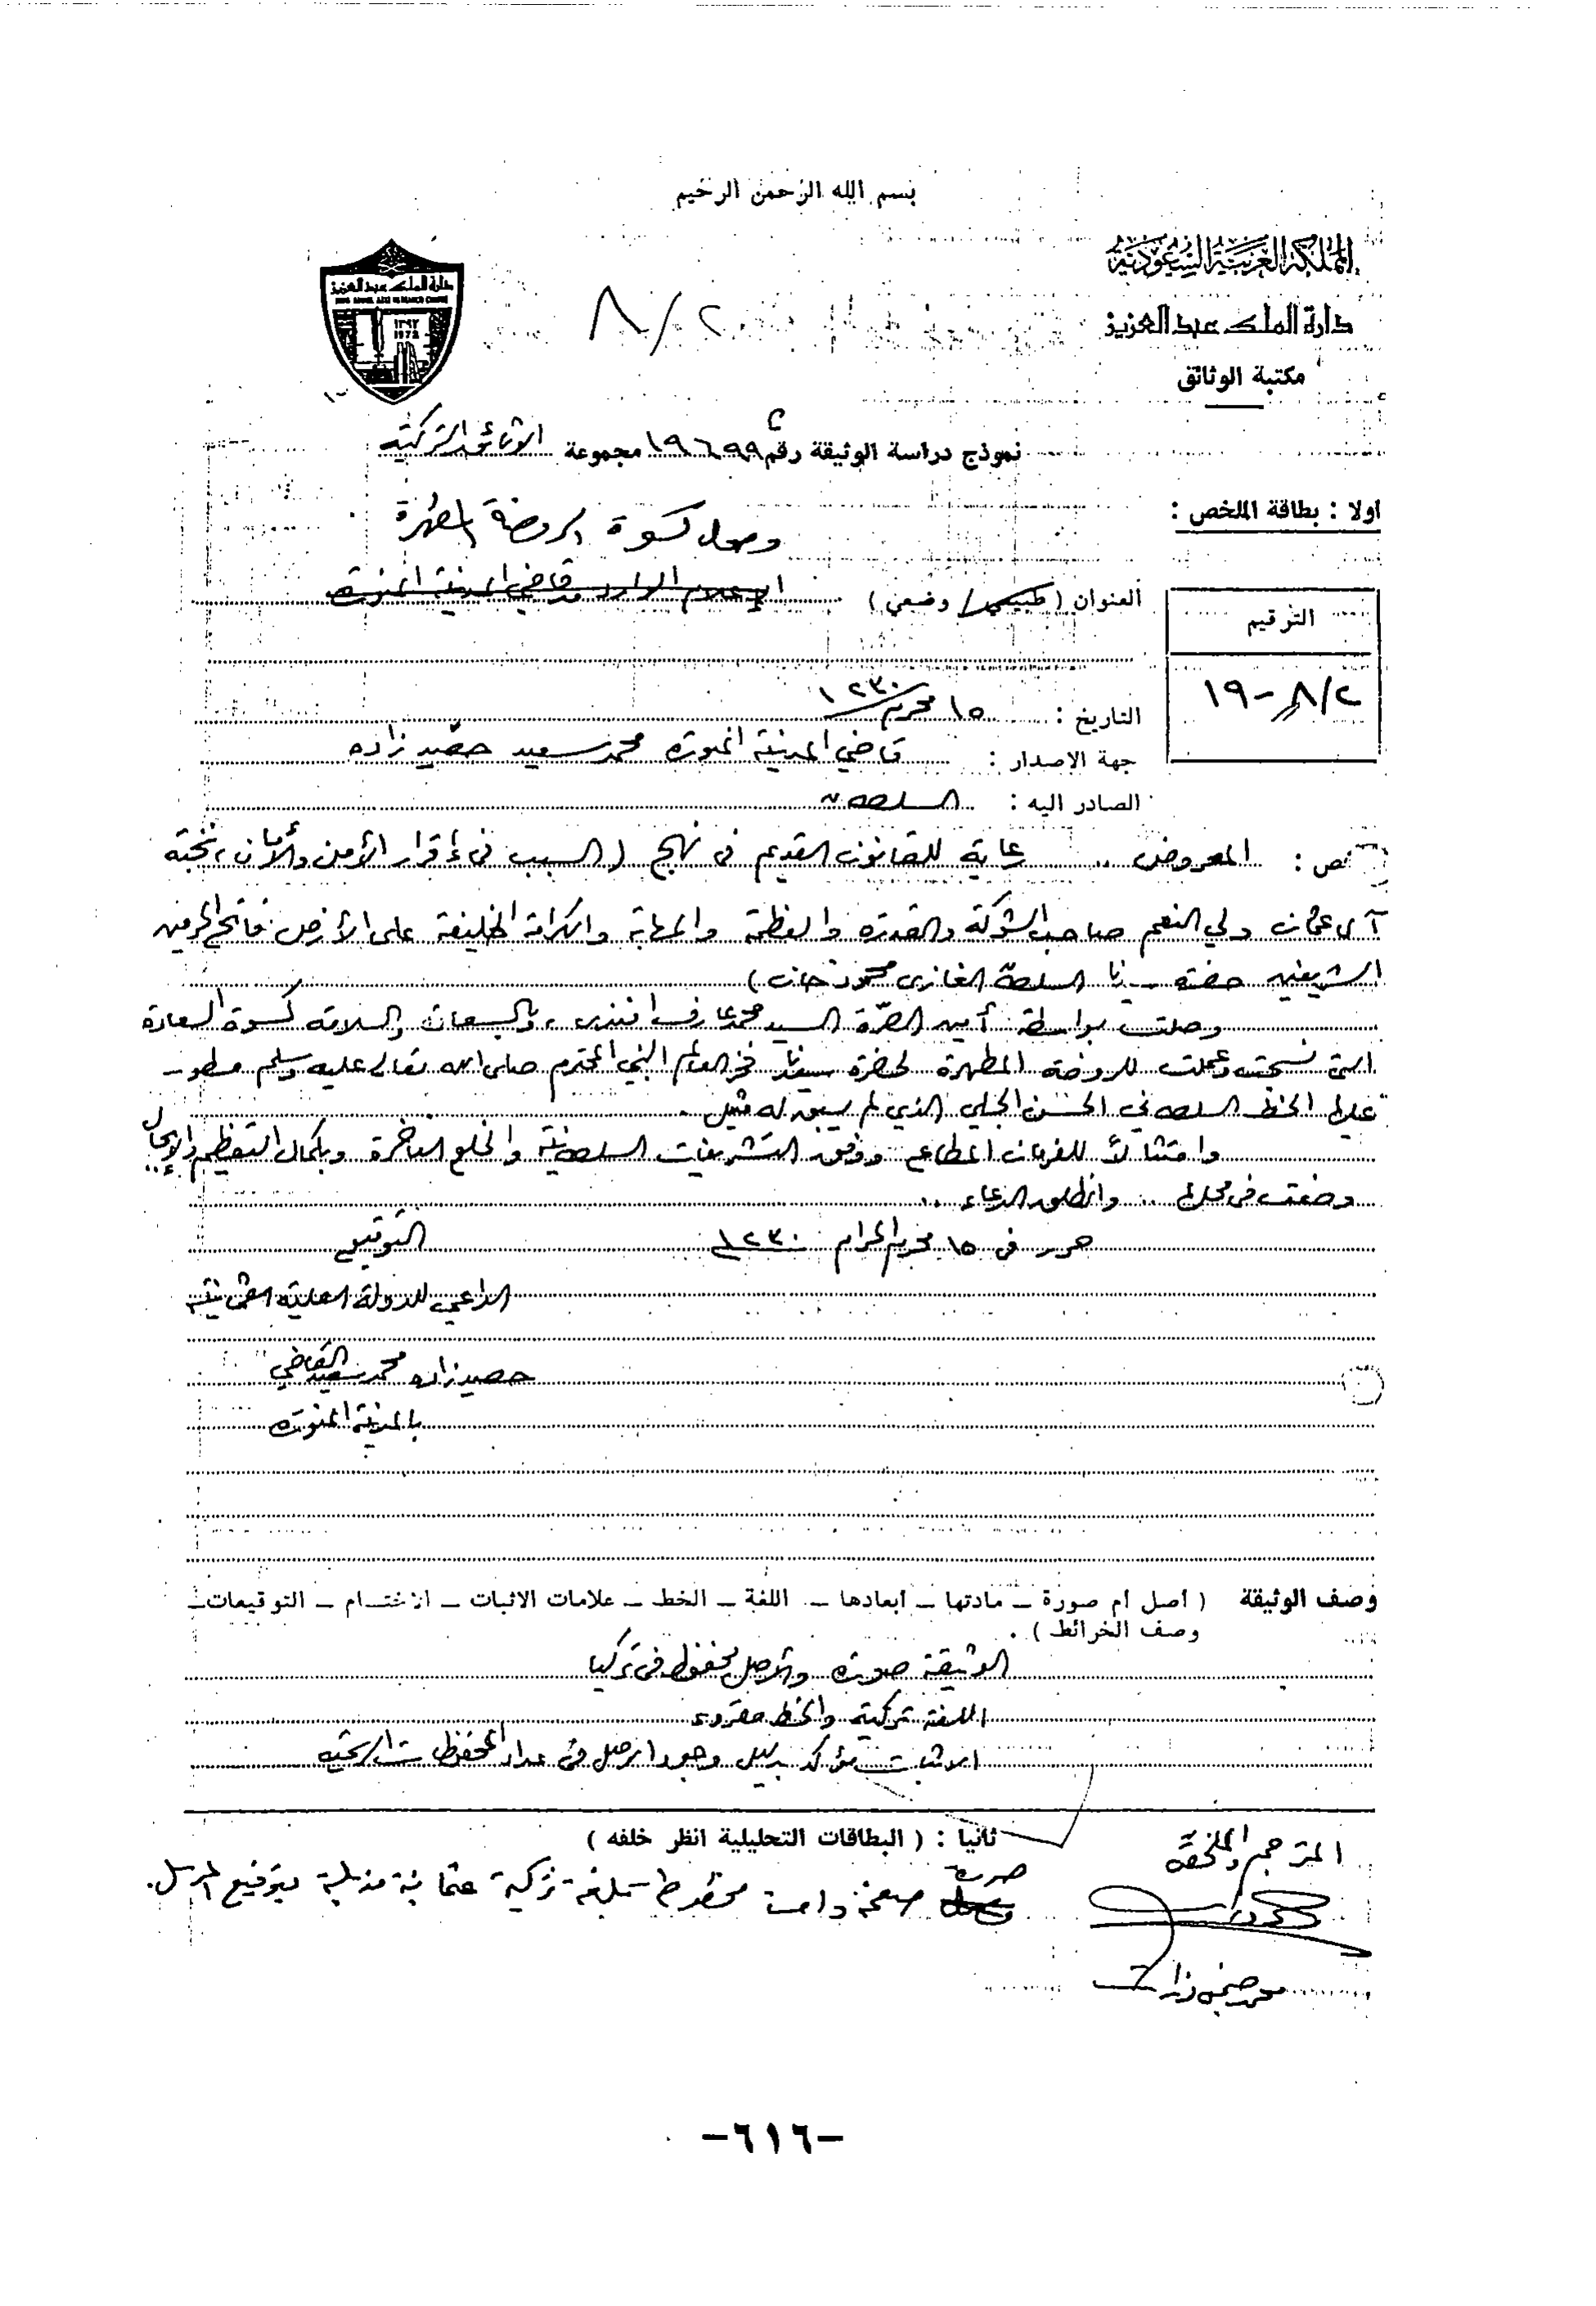 بسم الله الرحمن الرحيم
المملكة العربية السعودية
دارة الملك عبد العزيز
مكتبة الوثائق
دارة الملك عبد العزيز
١٣٩٢
1972
٨/٢
نموذج دراسة الوثيقة رقم ١٩٦٩٩ مجموعة الوثائق التركية
اولا : بطاقة الملخص :
وصول كسوة الروضة المطهرة
العنوان ( طبيعي / وضعي ) الإعلام الوارد من قاضي المدينة المنورة
الترقيم
٨/٢ - ١٩
التاريخ : ١٥ محرم ١٢٣٠
جهة الاصدار : قاضي المدينة المنورة محمد سعيد حفيد زاده
الصادر اليه : السلطان
نص : المعروض .. رعاية للقانون القديم في نهج ( السبب في إقرار الأمن والأمان ، نخبة
آل عثمان ولي النعم صاحب الشوكة والقدرة والعظمة والمهابة والكرامة الخليفة على الأرض فاتح الحرمين
الشريفين حضرة سلطاننا السلطان الغازي محمود خان )
وصلت بواسطة أمين الصرة السيد محمد عارف افندي ، وبالسعادة والسلامة كسوة السعادة
التي نسجت وعملت للروضة المطهرة لحضرة سيدنا فخر العالم النبي المحترم صلى الله تعالى عليه وسلم
على الخط السلطاني الحسن الجلي الذي لم يسبق له مثيل .
وامتثالا للفرمان المطاع ووفق التشريفات السلطانية والخلع الفاخرة وبكمال التعظيم والإجلال
وضعت في محلها .. وانطلق الدعاء ..
حرر في ١٥ محرم الحرام ١٢٣٠ التوقيع
الداعي للدولة العلية العثمانية
حفيد زاده محمد سعيد القاضي
بالمدينة المنورة
وصف الوثيقة ( أصل أم صورة – مادتها – ابعادها – اللغة – الخط – علامات الاثبات – الاختام – التوقيعات –
وصف الخرائط ) .
الوثيقة صورة والأصل محفوظ في تركيا
اللغة تركية والخط مقروء
الاثبات مؤكد بدليل وجود الأصل في عداد المحفوظات التاريخية
ثانيا : ( البطاقات التحليلية انظر خلفه )
المترجم والملخص
صورة صفحة واحدة مخطوطة بلغة تركية عثمانية مذيلة بتوقيع المرسل .
محمد
-٦١٦-